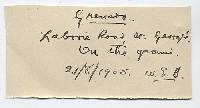 Grenada.
Laborie Road St. George's.
On the ground.
21/8/1905. W.E.B.